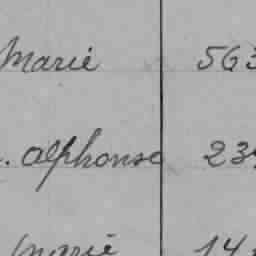 Marie 563
. Alphonse 239
Marie 14